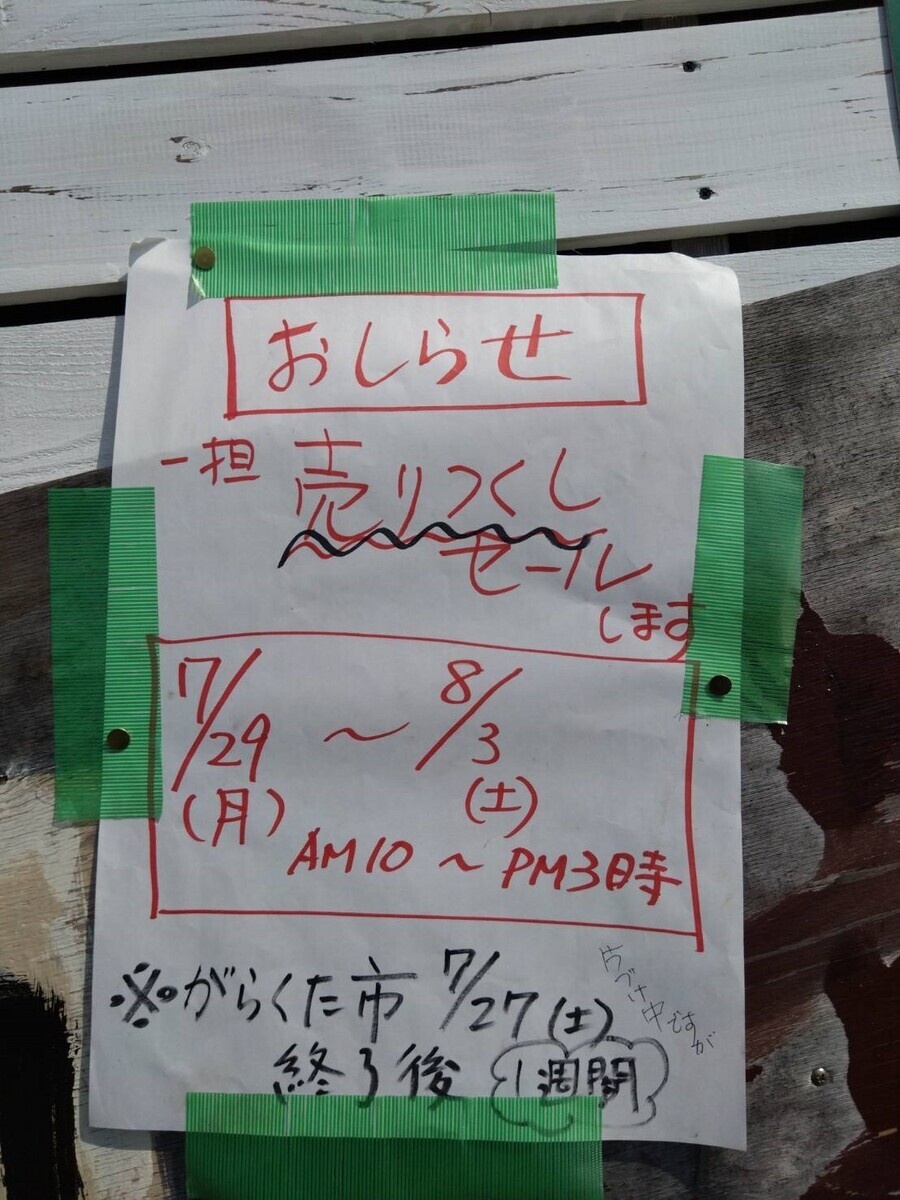 おしらせ
一担 売りつくし
セール
します
7/29 ～ 8/3
(月) (土)
AM10 ～ PM3時
※がらくた市 7/27(土)
片づけ中ですが
終了後 1週間